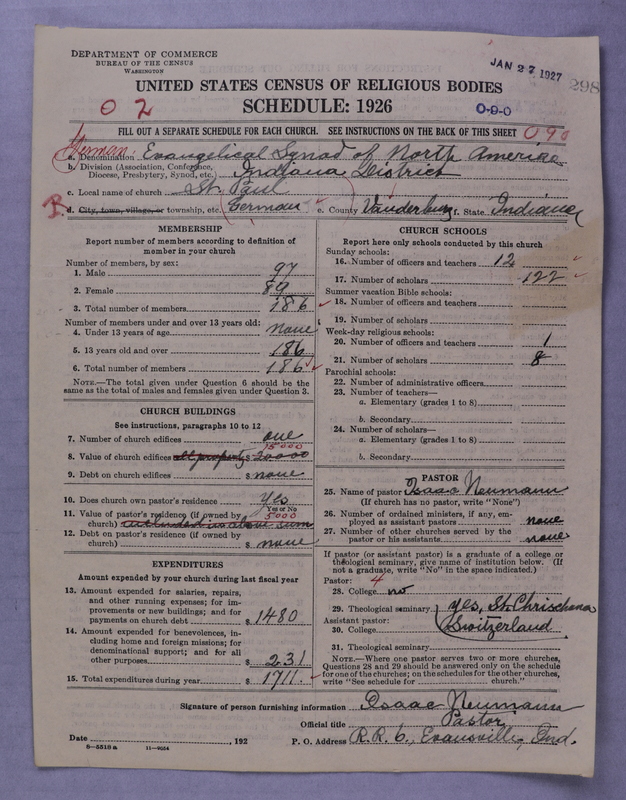 DEPARTMENT OF COMMERCE
BUREAU OF THE CENSUS
WASHINGTON
JAN 27 1927
298
UNITED STATES CENSUS OF RELIGIOUS BODIES
SCHEDULE: 1926
0 2
0-9-0
FILL OUT A SEPARATE SCHEDULE FOR EACH CHURCH. SEE INSTRUCTIONS ON THE BACK OF THIS SHEET
090
German
a. Denomination Evangelical Synod of North America
b. Division (Association, Conference, Diocese, Presbytery, Synod, etc.) Indiana District
c. Local name of church St. Paul
R.
d. City, town, village, or township, etc. German e. County Vanderburg f. State Indiana
MEMBERSHIP
Report number of members according to definition of
member in your church
Number of members, by sex:
1. Male 97
2. Female 89
3. Total number of members 186
Number of members under and over 13 years old:
4. Under 13 years of age none
5. 13 years old and over 186
6. Total number of members 186
NOTE.—The total given under Question 6 should be the
same as the total of males and females given under Question 3.
CHURCH BUILDINGS
See instructions, paragraphs 10 to 12
7. Number of church edifices one
15000
8. Value of church edifices all property $ 20000
9. Debt on church edifices $ none
10. Does church own pastor's residence? yes
Yes or No
11. Value of pastor's residence (if owned by 5000
church) included in above sum
12. Debt on pastor's residence (if owned by
church) $ none
EXPENDITURES
Amount expended by your church during last fiscal year
13. Amount expended for salaries, repairs,
and other running expenses; for im-
provements or new buildings; and for
payments on church debt $ 1480
14. Amount expended for benevolences, in-
cluding home and foreign missions; for
denominational support; and for all
other purposes $ 231
15. Total expenditures during year $ 1711.
CHURCH SCHOOLS
Report here only schools conducted by this church
Sunday schools:
16. Number of officers and teachers 12
17. Number of scholars 122
Summer vacation Bible schools:
18. Number of officers and teachers
19. Number of scholars
Week-day religious schools:
20. Number of officers and teachers 1
21. Number of scholars 8
Parochial schools:
22. Number of administrative officers
23. Number of teachers—
a. Elementary (grades 1 to 8)
b. Secondary
24. Number of scholars—
a. Elementary (grades 1 to 8)
b. Secondary
PASTOR
25. Name of pastor Isaac Neumann
(If church has no pastor, write "None")
26. Number of ordained ministers, if any, em-
ployed as assistant pastors none
27. Number of other churches served by the
pastor or his assistants none
If pastor (or assistant pastor) is a graduate of a college or
theological seminary, give name of institution below. (If
not a graduate, write "No" in the space indicated.)
Pastor: 4
28. College no
29. Theological seminary yes, St. Chrischona
Assistant pastor:
30. College Switzerland
31. Theological seminary
NOTE.—Where one pastor serves two or more churches,
Questions 28 and 29 should be answered only on the schedule
for one of the churches; on the schedules for the other churches,
write "See schedule for church."
Signature of person furnishing information Isaac Neumann
Official title Pastor
Date , 192 P. O. Address R.R. 6, Evansville, Ind.
8—5510 a 11—9024